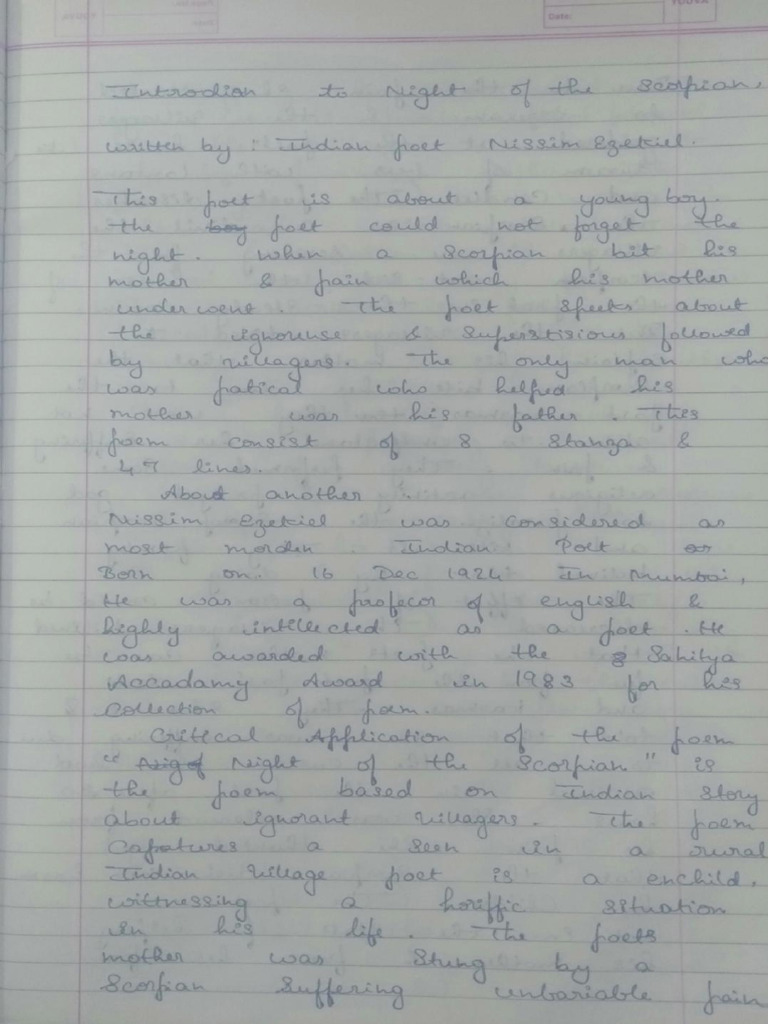 Date:
Introdian to Night of the Scorpian.
written by : Indian poet Nissim Ezekiel.
This poet is about a young boy.
the boy poet could not forget the
night. when a scorpian bit his
mother & pain which his mother
underwent The poet speeks about
the ignorense & superstisious followed
by villagers. The only man who
was patical who helped his
mother was his father. This
poem consist of 8 stanza &
47 lines.
About another
Nissim Ezekiel was considered as
most morden Indian Poet or
Born on. 16 Dec 1924 In Mumbai,
He was a profecor of english &
highly intellected as a poet. He
was awarded with the Sahitya
Accadamy Award in 1983 for his
collection of poem.
Critical Application of the poem
" Night of the Scorpian " is
the poem based on Indian story
about ignorant villagers. The poem
Capatures a seen in a rural
Indian village poet is a enchild.
wittnessing a horiffic situation
in his life. The poets
mother was stung by a
Scorpian suffering unbariable pain